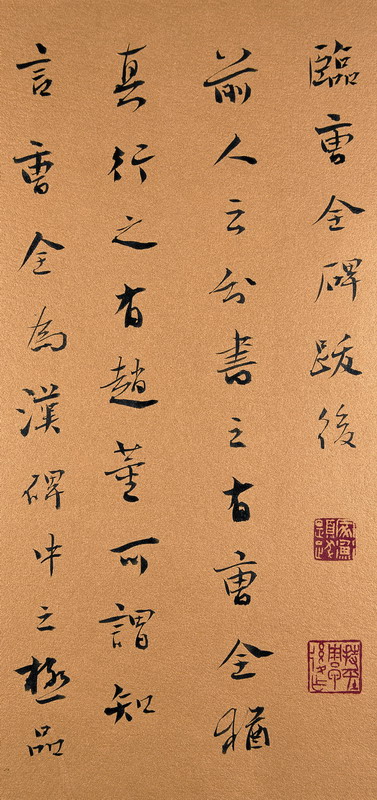 臨曹全碑跋後
前人云分書之有曹全猶
真行之有趙董可謂知
言曹全為漢碑中之極品